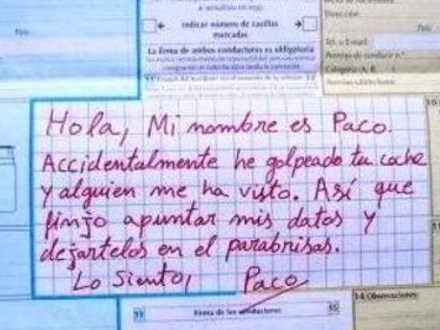 indicar número de casillas
marcadas
La firma de ambos conductores es obligatoria
Hola, Mi nombre es Paco.
Accidentalmente he golpeado tu coche
y alguien me ha visto. Así que
finjo apuntar mis datos y
dejartelos en el parabrisas.
Lo Siento, Paco
14 Observaciones
Firma de los conductores
15